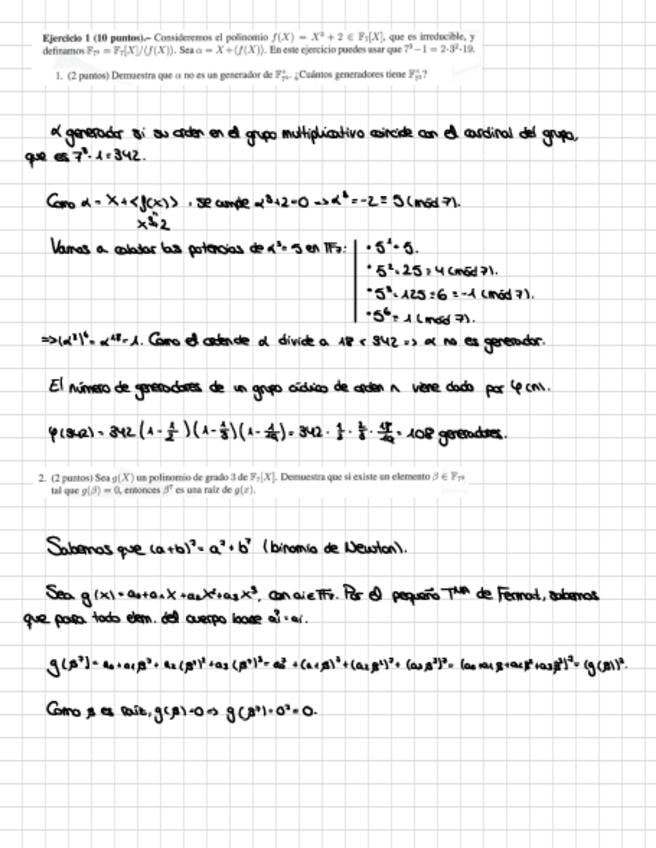 Ejercicio 1 (10 puntos).– Consideremos el polinomio f(X) = X³ + 2 ∈ F₇[X], que es irreducible, y
definamos F₇³ = F₇[X]/(f(X)). Sea α = X + (f(X)). En este ejercicio puedes usar que 7³ − 1 = 2·3²·19.
1. (2 puntos) Demuestra que α no es un generador de F*₇³. ¿Cuántos generadores tiene F*₇³?
α generador si su orden en el grupo multiplicativo coincide con el cardinal del grupo,
que es 7³-1 = 342.
Como α = X + <f(x)>, se cumple α³+2=0 => α³ = -2 ≡ 5 (mód 7).
x³+2
Vamos a calcular las potencias de α³ = 5 en F₇:
· 5¹ = 5.
· 5² = 25 = 4 (mód 7).
· 5³ = 125 = 6 = -1 (mód 7).
· 5⁶ = 1 (mód 7).
=> (α³)⁶ = α¹⁸ = 1. Como el orden de α divide a 18 < 342 => α no es generador.
El número de generadores de un grupo cíclico de orden n viene dado por φ(n).
φ(342) = 342 (1 - 1/2)(1 - 1/3)(1 - 1/19) = 342 · 1/2 · 2/3 · 18/19 = 108 generadores.
2. (2 puntos) Sea g(X) un polinomio de grado 3 de F₇[X]. Demuestra que si existe un elemento β ∈ F₇³
tal que g(β) = 0, entonces β⁷ es una raíz de g(x).
Sabemos que (a+b)⁷ = a⁷ + b⁷ (binomio de Newton).
Sea g(x) = a₀+a₁X+a₂X²+a₃X³, con aᵢ ∈ F₇. Por el pequeño Tᵐᵃ de Fermat, sabemos
que para todo elem. del cuerpo base aᵢ⁷ = aᵢ.
g(β⁷) = a₀ + a₁β⁷ + a₂(β⁷)² + a₃(β⁷)³ = a₀⁷ + (a₁β)⁷ + (a₂β²)⁷ + (a₃β³)⁷ = (a₀+a₁β+a₂β²+a₃β³)⁷ = (g(β))⁷.
Como β es raíz, g(β) = 0 => g(β⁷) = 0⁷ = 0.